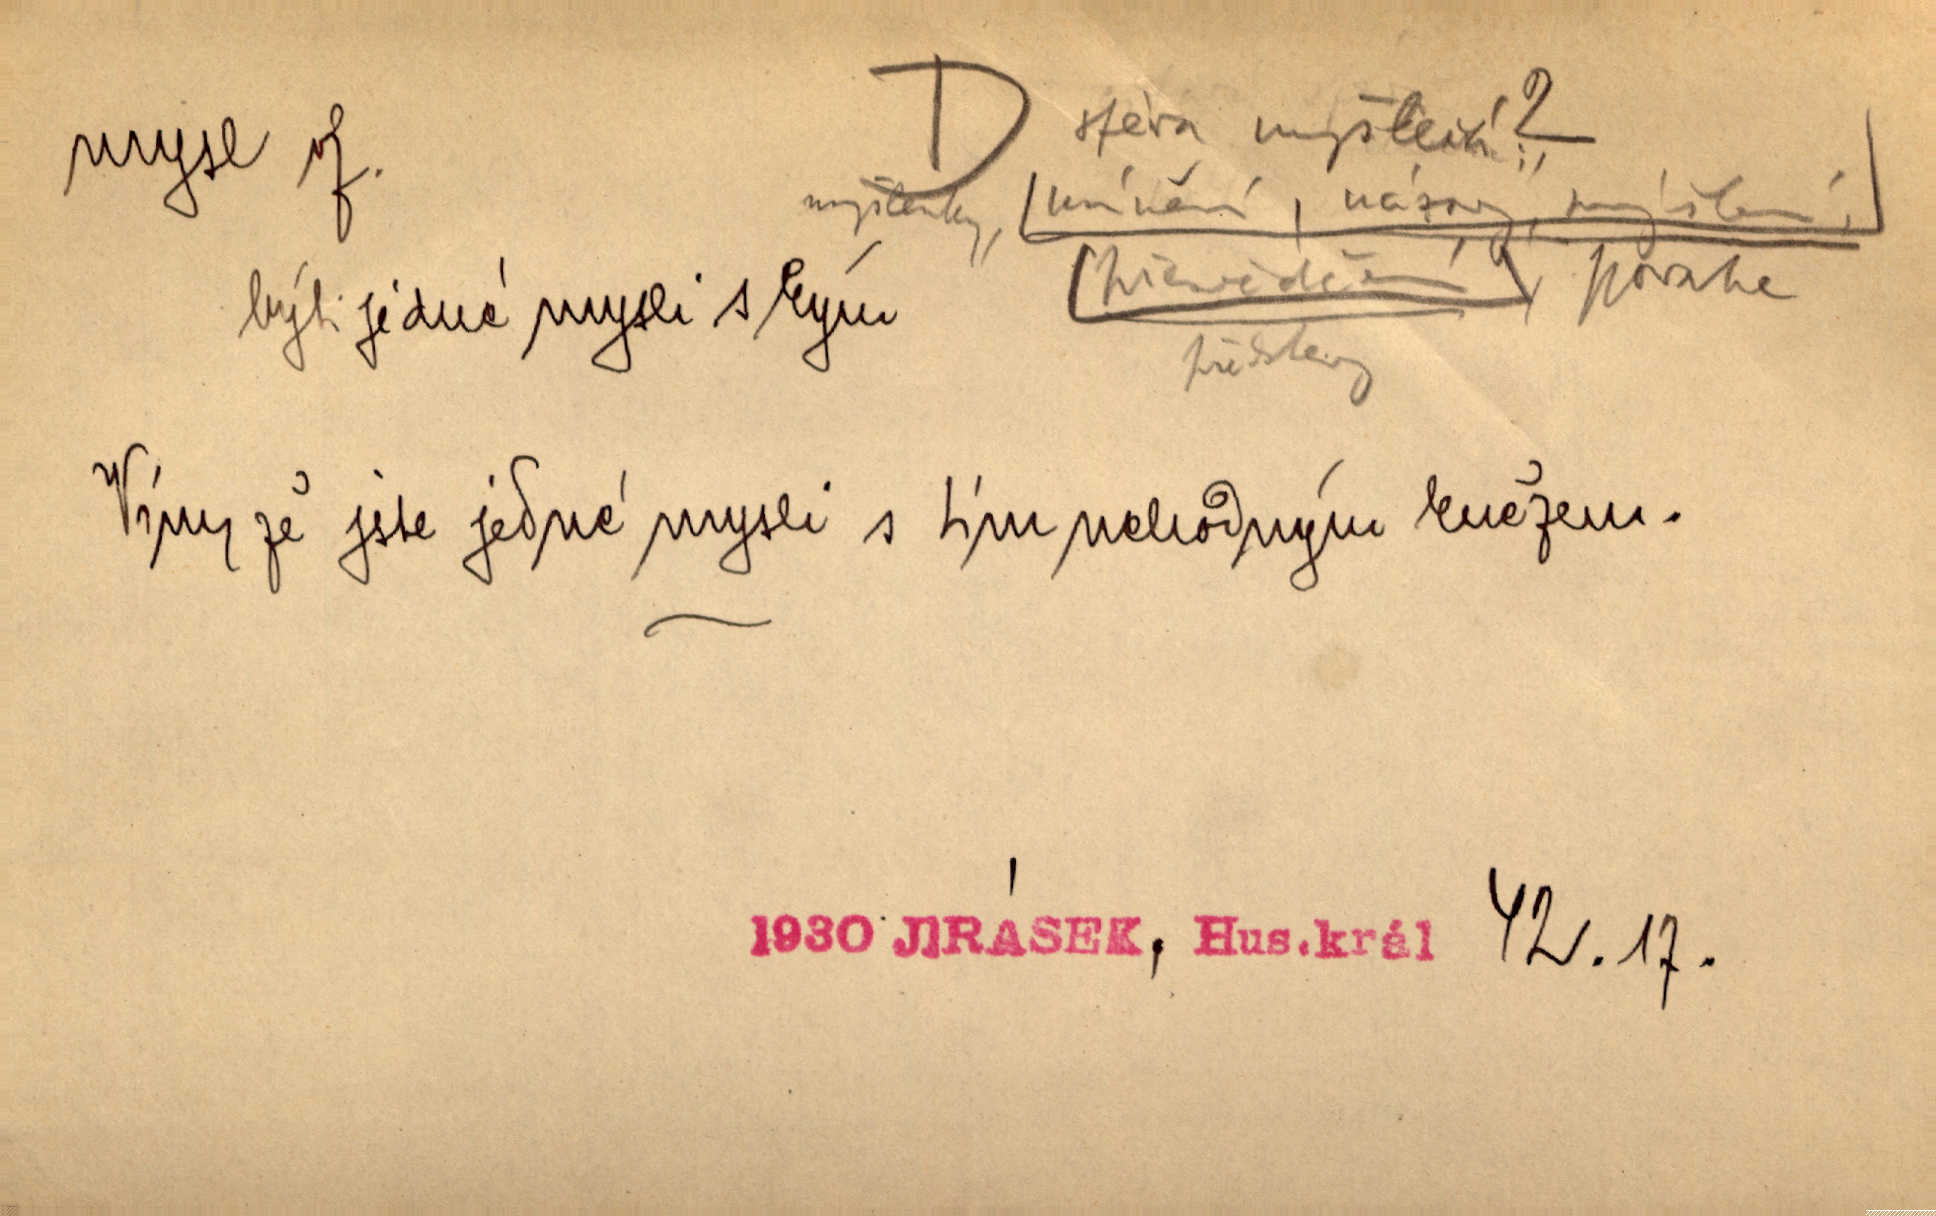 mysl f.
D sféra myšlení?
myšlenky, mínění, názory, myšlení,
býti jedné mysli s kým
přesvědčení, povaha
představy
Vím, že jste jedné mysli s tím nehodným knězem.
1930 JIRÁSEK, Hus.král 42.17.